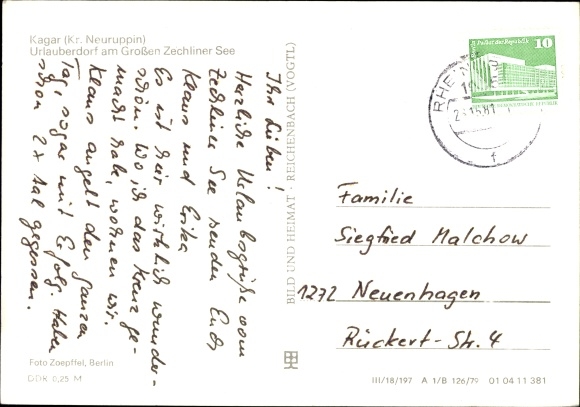 Kagar (Kr. Neuruppin)
Urlauberdorf am Großen Zechliner See
Ihr Lieben!
Herzliche Urlaubsgrüße vom
Zechliner See senden Euch
Klaus und Erika
Es ist hier wirklich wunder-
schön. Wo ich das Kreuz ge-
macht habe, wohnen wir.
Klaus angelt den ganzen
Tag, sogar mit Erfolg. Haben
schon 2x Aal gegessen.
Foto Zoepffel, Berlin
DDR 0,25 M
BILD UND HEIMAT · REICHENBACH (VOGTL)
Palast der Republik
10
RHEIN
Familie
Siegfried Malchow
1272 Neuenhagen
Rückert-Str. 4
III/18/197 A 1/B 126/79 01 04 11 381